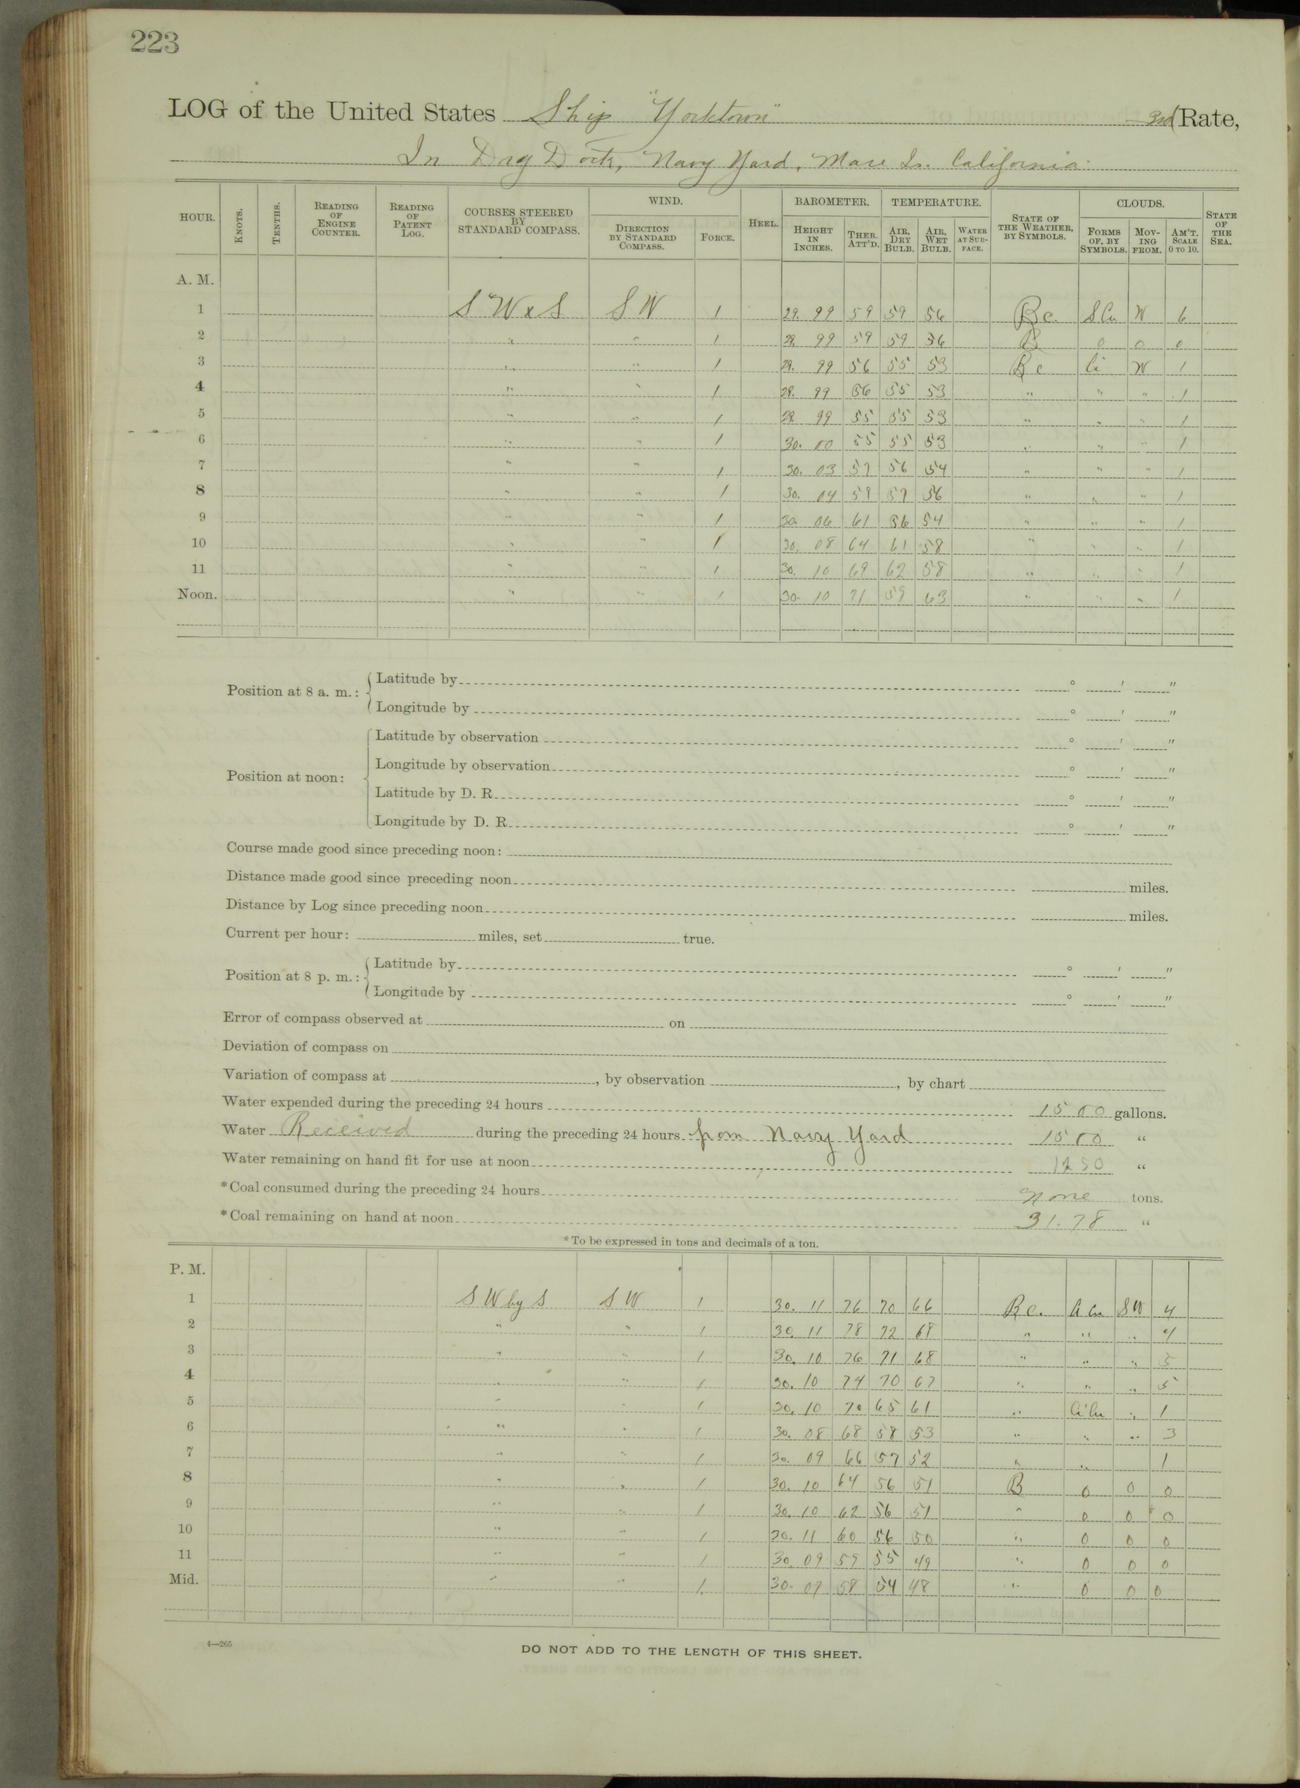 223
LOG of the United States Ship "Yorktown" 3rd Rate,
In Dry Dock, Navy Yard, Mare Is. California.
HOUR. KNOTS. TENTHS. READING OF ENGINE COUNTER. READING OF PATENT LOG. COURSES STEERED BY STANDARD COMPASS. WIND. DIRECTION BY STANDARD COMPASS. FORCE. HEEL. BAROMETER. HEIGHT IN INCHES. THER. ATT'D. TEMPERATURE. AIR, DRY BULB. AIR, WET BULB. WATER AT SURFACE. STATE OF THE WEATHER, BY SYMBOLS. CLOUDS. FORMS OF, BY SYMBOLS. MOVING FROM. AM'T. SCALE 0 TO 10. STATE OF THE SEA.
A. M.
1 S W x S S W 1 29. 99 59 59 56 Bc. S Cu W 6
2 " " 1 29. 99 59 59 56 B 0 0 0
3 " " 1 29. 99 56 55 53 Bc Ci W 1
4 " " 1 29. 99 56 55 53 " " " 1
5 " " 1 29. 99 55 55 53 " " " 1
6 " " 1 30. 00 55 55 53 " " " 1
7 " " 1 30. 03 57 56 54 " " " 1
8 " " 1 30. 04 59 57 56 " " " 1
9 " " 1 30. 06 61 56 54 " " " 1
10 " " 1 30. 08 64 61 58 " " " 1
11 " " 1 30. 10 69 62 58 " " " 1
Noon. " " 1 30. 10 71 59 63 " " " 1
Position at 8 a. m.: Latitude by ° ' "
Longitude by ° ' "
Position at noon: Latitude by observation ° ' "
Longitude by observation ° ' "
Latitude by D. R. ° ' "
Longitude by D. R. ° ' "
Course made good since preceding noon:
Distance made good since preceding noon miles.
Distance by Log since preceding noon miles.
Current per hour: miles, set true.
Position at 8 p. m.: Latitude by ° ' "
Longitude by ° ' "
Error of compass observed at on
Deviation of compass on
Variation of compass at , by observation , by chart
Water expended during the preceding 24 hours 1500 gallons.
Water Received during the preceding 24 hours from Navy Yard 1500 "
Water remaining on hand fit for use at noon 1250 "
*Coal consumed during the preceding 24 hours None tons.
*Coal remaining on hand at noon 31.78 "
*To be expressed in tons and decimals of a ton.
P. M.
1 S W by S S W 1 30. 11 76 70 66 Bc. A Cu SW 4
2 " " 1 30. 11 78 72 68 " " " 4
3 " " 1 30. 10 76 71 68 " " " 5
4 " " 1 30. 10 74 70 67 " " " 5
5 " " 1 30. 10 70 65 61 " Ci Cu " 1
6 " " 1 30. 08 68 58 53 " " " 3
7 " " 1 30. 09 66 57 52 " " 1
8 " " 1 30. 10 64 56 51 B 0 0 0
9 " " 1 30. 10 62 56 51 " 0 0 0
10 " " 1 30. 11 60 56 50 " 0 0 0
11 " " 1 30. 09 59 55 49 " 0 0 0
Mid. " " 1 30. 09 58 54 48 " 0 0 0
4—265
DO NOT ADD TO THE LENGTH OF THIS SHEET.